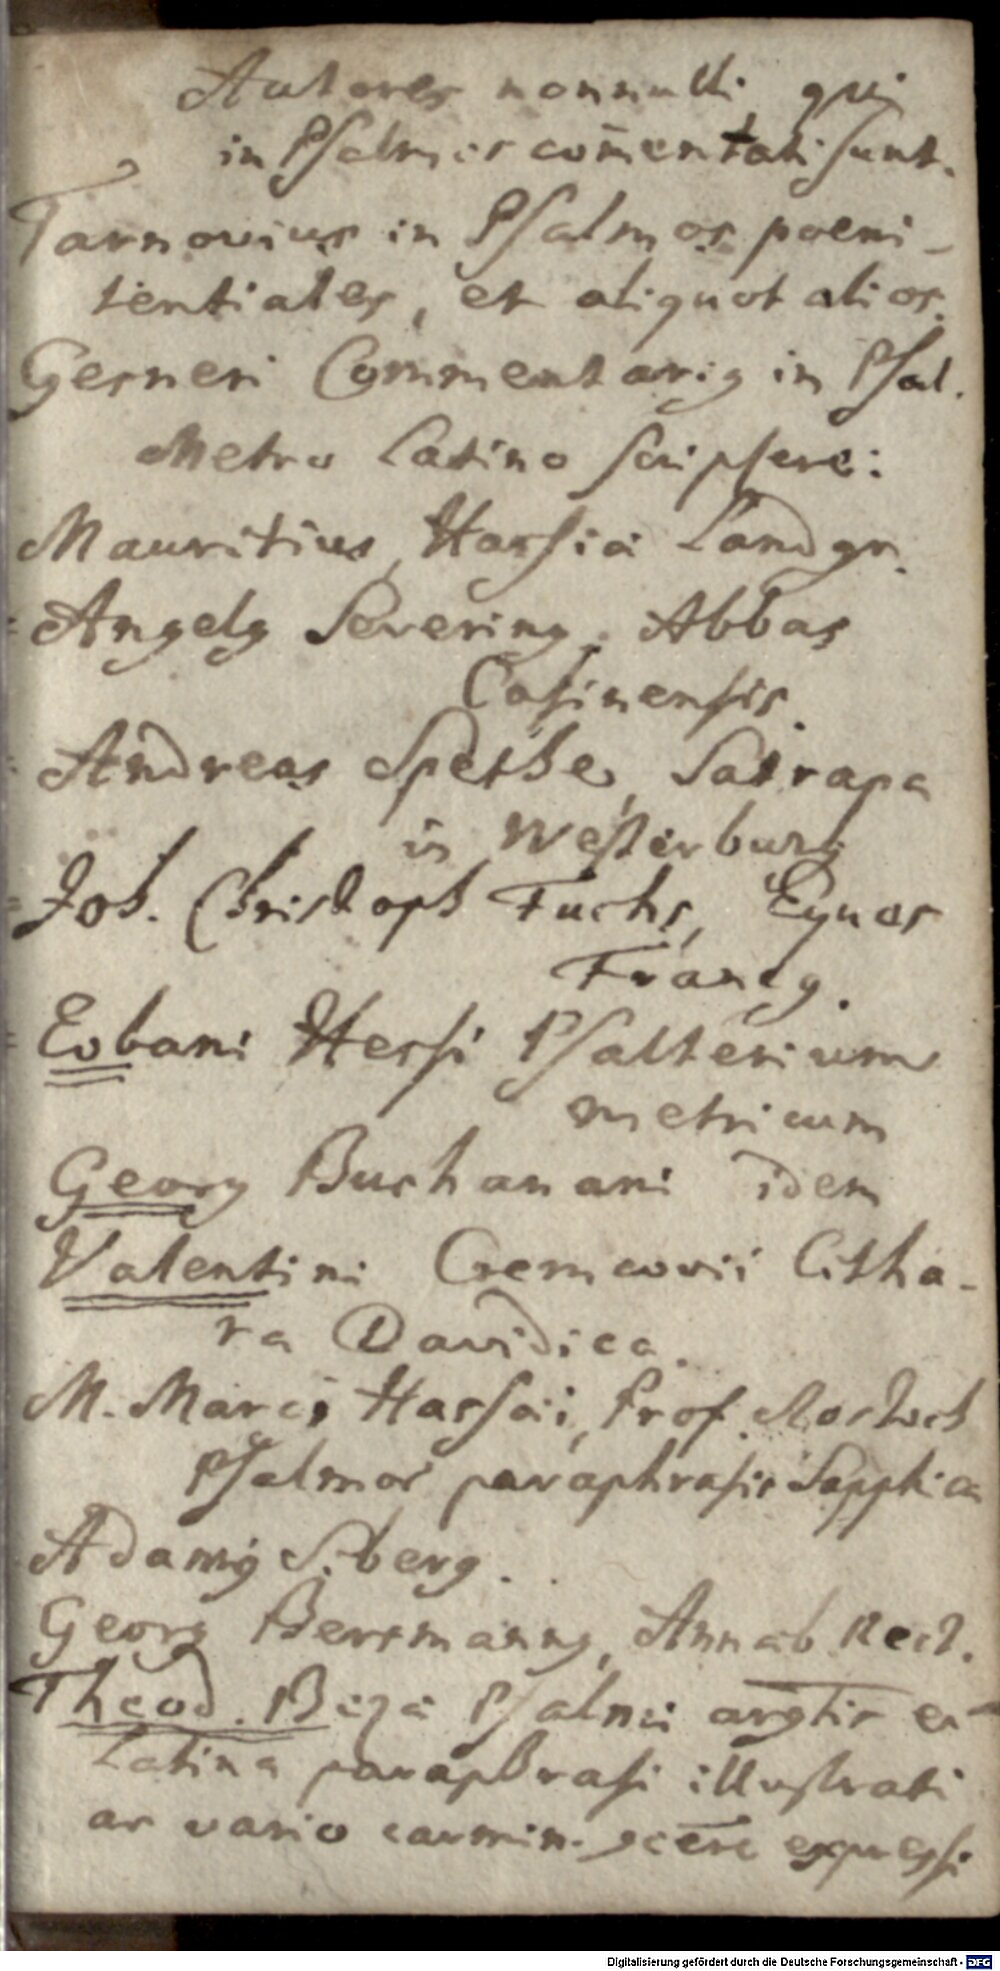 Autores nonnulli, qui
in Psalmos com̄entati sunt.
Tarnovius in Psalmos poeni-
tentiales, et aliquot alios.
Gesneri Commentarig in Psal.
Metro Latino scripsere:
Mauritius, Hassiæ Landgr.
Angelg Severing, Abbas
Casinensis.
Andreas Spethe, Satrapa
in Westerburg
Joh. Christoph Fuchs, Eques
Francg.
Eobani Hessi Psalterium
metricum
Georg Buchanani idem
Valentini Cremcovii Citha-
ra Davidica.
M. Marci Hassæi, Prof. Rostoch
Psalmor paraphrasis Sapphica
Adamg Siberg.
Georg Bersmanng, Annæb. Rect.
Theod. Bezæ Psalmi argtis et
Latina paraphrasi illustrati
ac vario carmin. expressi